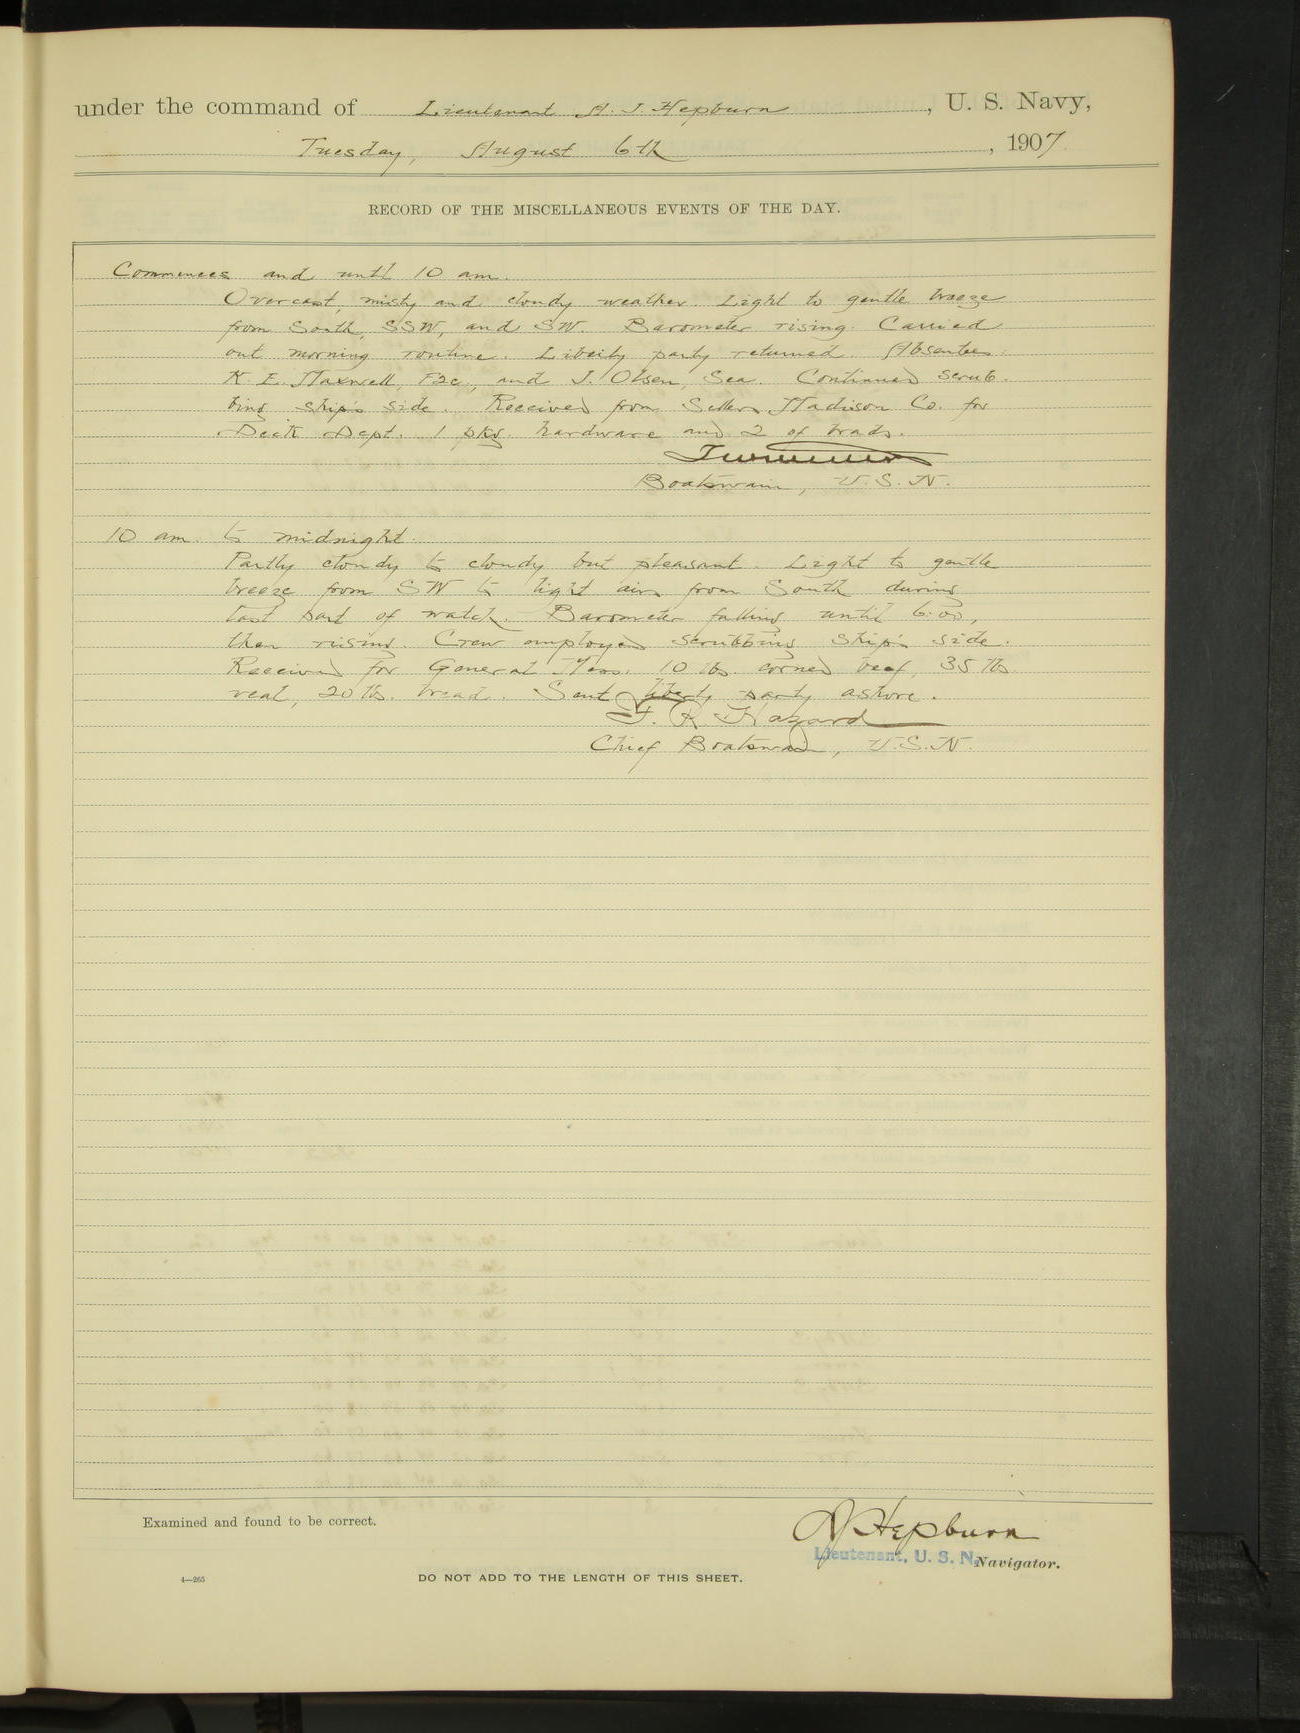 under the command of Lieutenant A. J. Hepburn, U. S. Navy,
Tuesday, August 6th, 1907
RECORD OF THE MISCELLANEOUS EVENTS OF THE DAY.
Commences and until 10 am.
Overcast, misty and cloudy weather. Light to gentle breeze
from South, SSW, and SW. Barometer rising. Carried
out morning routine. Liberty party returned. Absentees:
K. E. Maxwell, F2c., and J. Olsen, Sea. Continued scrub-
bing ship's side. Received from Madison Co. for
Deck Dept. 1 pkg. hardware and 2 of brads.
Boatswain, U.S.N.
10 am. to midnight.
Partly cloudy to cloudy but pleasant. Light to gentle
breeze from SW to light airs from South during
last part of watch. Barometer falling until 6:00,
then rising. Crew employed scrubbing ship's side.
Received for General Mess: 10 lbs. corned beef, 35 lbs
veal, 20 lbs. bread. Sent liberty party ashore.
F. R. Hazard
Chief Boatswain, U.S.N.
Examined and found to be correct.
A J Hepburn
Lieutenant, U. S. N. Navigator.
4—265
DO NOT ADD TO THE LENGTH OF THIS SHEET.